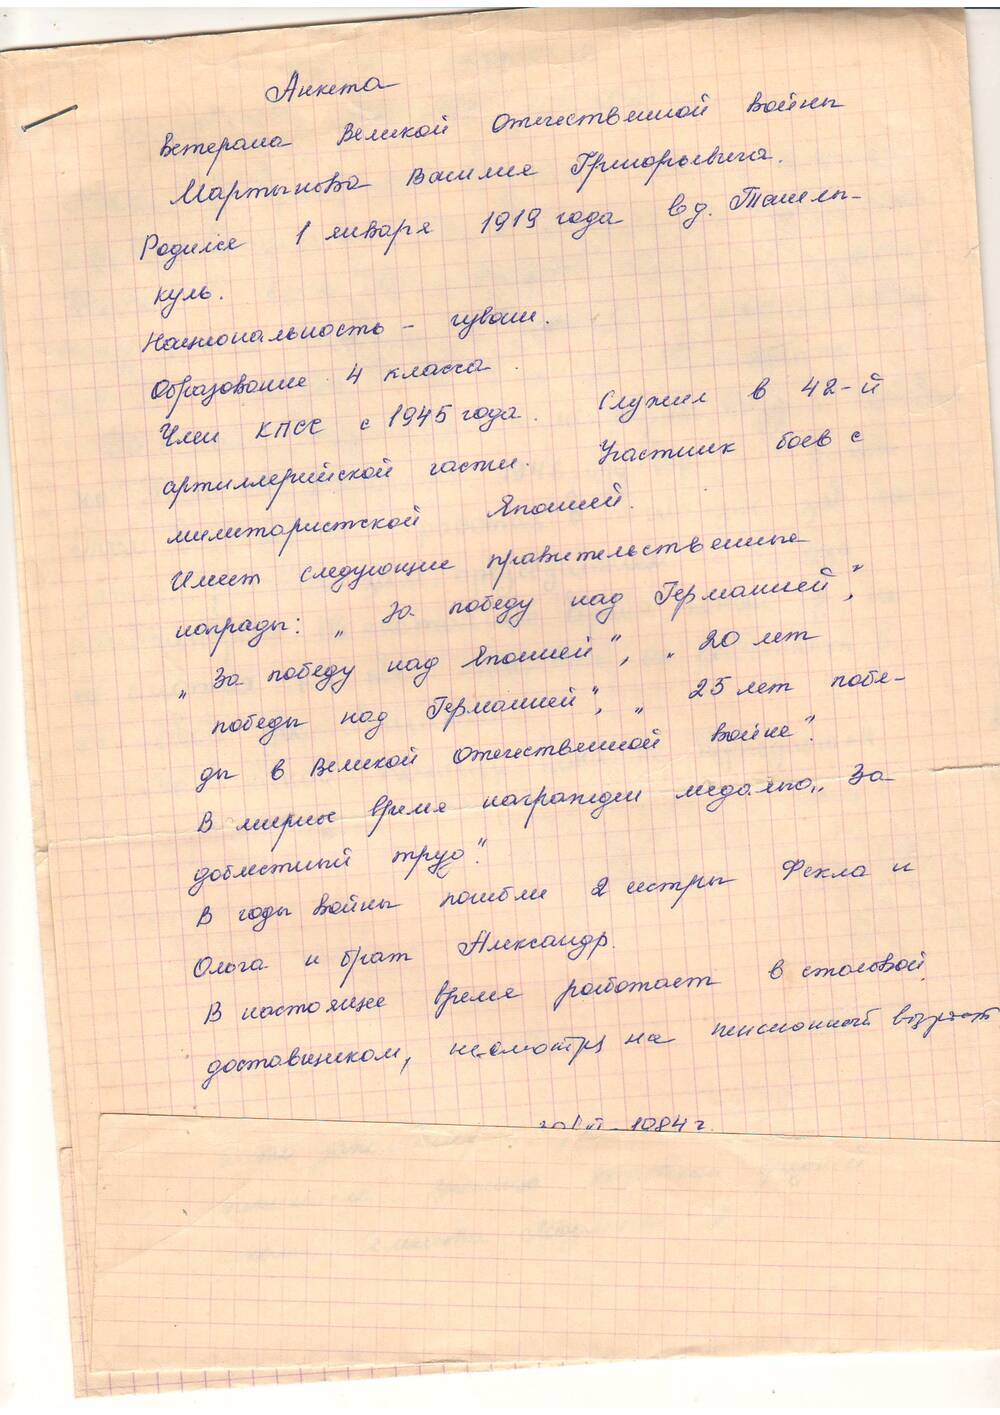 Анкета
Ветерана Великой Отечественной Войны
Мартынова Василия Григорьевича.
Родился 1 января 1919 года в д. Ташлы-
куль.
Национальность - чуваш.
Образование 4 класса.
Член КПСС с 1945 года. Служил в 42-й
артиллерийской части. Участник боев с
милитаристской Японией.
Имеет следующие правительственные
награды: „За победу над Германией",
„За победу над Японией", „20 лет
победы над Германией", „25 лет побе-
ды в Великой Отечественной Войне".
В мирное время награжден медалью „За
доблестный труд".
В годы Войны погибли 2 сестры Фекла и
Ольга и брат Александр.
В настоящее время работает в столовой
доставщиком, несмотря на пенсионный возраст
1984 г.